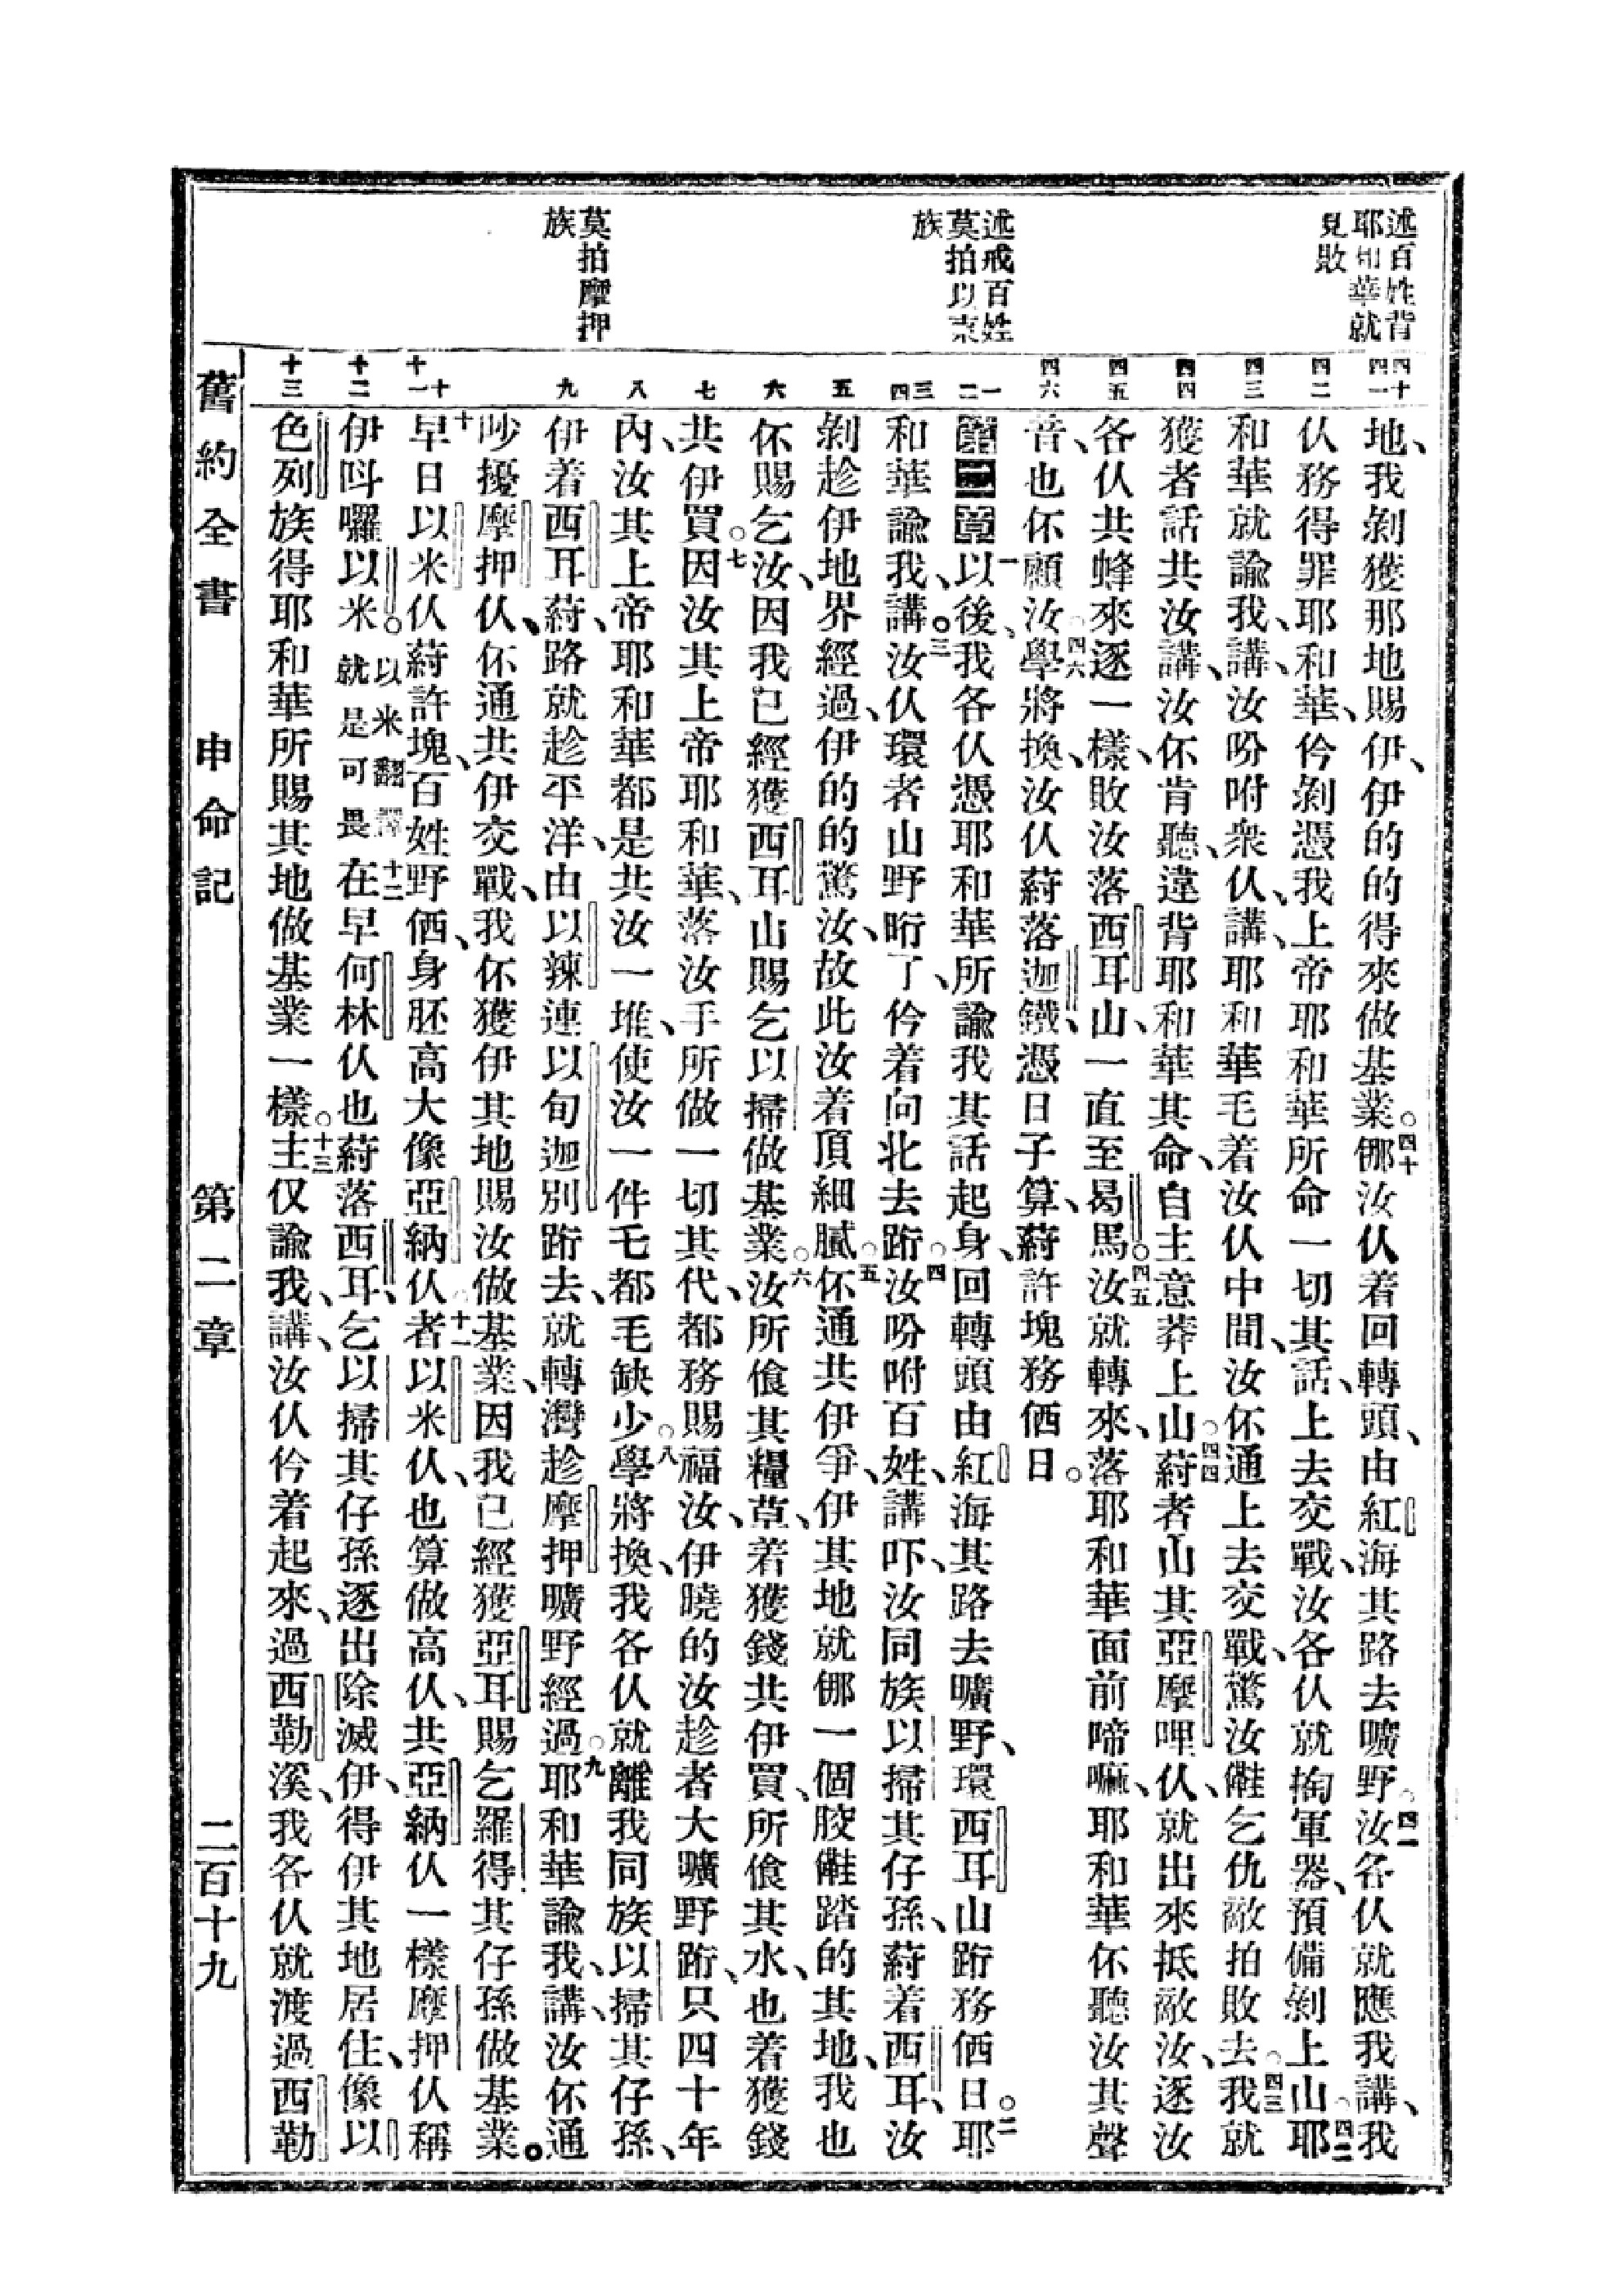 述百姓背
耶和華就
見敗
述戒百姓
莫拍以東
族
莫拍摩押
族
四十
四一
四二
四三
四四
四五
四六
一
二
三
四
五
六
七
八
九
十
十一
十二
十三
地、我剝獲那地賜伊、伊的的得來做基業。四十㑚汝仈着回轉頭、由紅海其路去曠野。四一汝各仈就應我講、我
仈務得罪耶和華、仱剝憑我上帝耶和華所命一切其話、上去交戰、汝各仈就掏軍器、預備剝上山。四二耶
和華就諭我、講、汝吩咐衆仈、講、耶和華毛着汝仈中間、汝伓通上去交戰、驚汝𣍐乞仇敵拍敗去。四三我就
獲者話共汝講、汝伓肯聽、違背耶和華其命、自主意莽上山。四四䓁者山其亞摩哩仈、就出來抵敵汝、逐汝
各仈共蜂來逐一樣、敗汝落西耳山、一直至曷馬。四五汝就轉來、落耶和華面前啼嘛、耶和華伓聽汝其聲
音、也伓顧汝。四六學將換、汝仈䓁落迦鐵、憑日子算、䓁許塊務㑚日。
第二章一以後、我各仈憑耶和華所諭我其話起身、回轉頭由紅海其路去曠野、環西耳山跡務㑚日。二耶
和華諭我、講。三汝仈環者山野𣍐了、仱着向北去跡。四汝吩咐百姓、講吓、汝同族以掃其仔孫、䓁着西耳、汝
剝趁伊地界經過、伊的的驚汝、故此汝着頂細膩。五伓通共伊爭、伊其地就㑚一個骹𣍐踏的其地、我也
伓賜乞汝、因我已經獲西耳山賜乞以掃做基業。六汝所飱其糧草、着獲錢共伊買、所飱其水、也着獲錢
共伊買。七因汝其上帝耶和華、落汝手所做一切其代、都務賜福汝、伊曉的汝趁者大曠野跡、只四十年
內、汝其上帝耶和華都是共汝一堆、使汝一件乇都毛缺少。八學將換、我各仈就離我同族以掃其仔孫、
伊着西耳、䓁路就趁平洋、由以辣連以旬迦別跡去、就轉灣趁摩押曠野經過。九耶和華諭我、講、汝伓通
吵擾摩押仈、伓通共伊交戰、我伓獲伊其地賜汝做基業、因我已經獲亞耳賜乞羅得其仔孫做基業。
十早日以米仈䓁許塊、百姓野㑚、身胚高大像亞納仈。十一者以米仈、也算做高仈、共亞納仈一樣、摩押仈稱
伊呌囉以米。以米翻譯就是可畏十二在早何林仈也䓁落西耳、乞以掃其仔孫逐出除滅伊、得伊其地居住、像以
色列族得耶和華所賜其地做基業一樣。十三主仅諭我、講、汝仈仱着起來、過西勒溪、我各仈就渡過西勒
舊約全書 申命記 第二章 二百十九